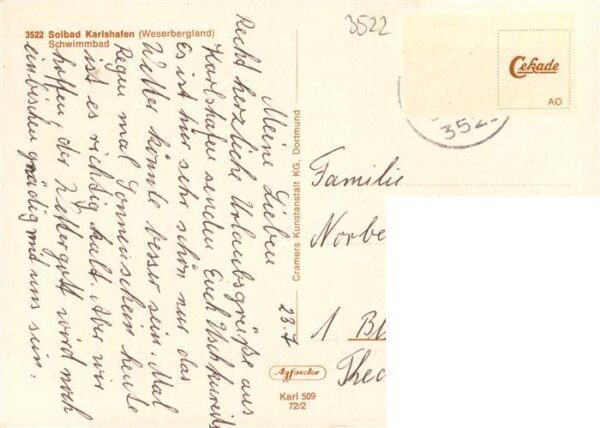 3522 Solbad Karlshafen (Weserbergland)
Schwimmbad
3522
Cekade
AO
352
28.7
Meine Lieben
Recht herzliche Urlaubsgrüße aus
Karlshafen senden Euch
Es ist hier sehr schön nur das
Wetter könnte besser sein. Mal
Regen mal Sonnenschein heute
ist es richtig kalt. Aber wir
hoffen, der Wettergott wird noch
einbischen gnädig mit uns sein.
Cramers Kunstanstalt KG, Dortmund
Familie
Norbe
1 B
Theo
Agfacolor
Karl 509
72/2